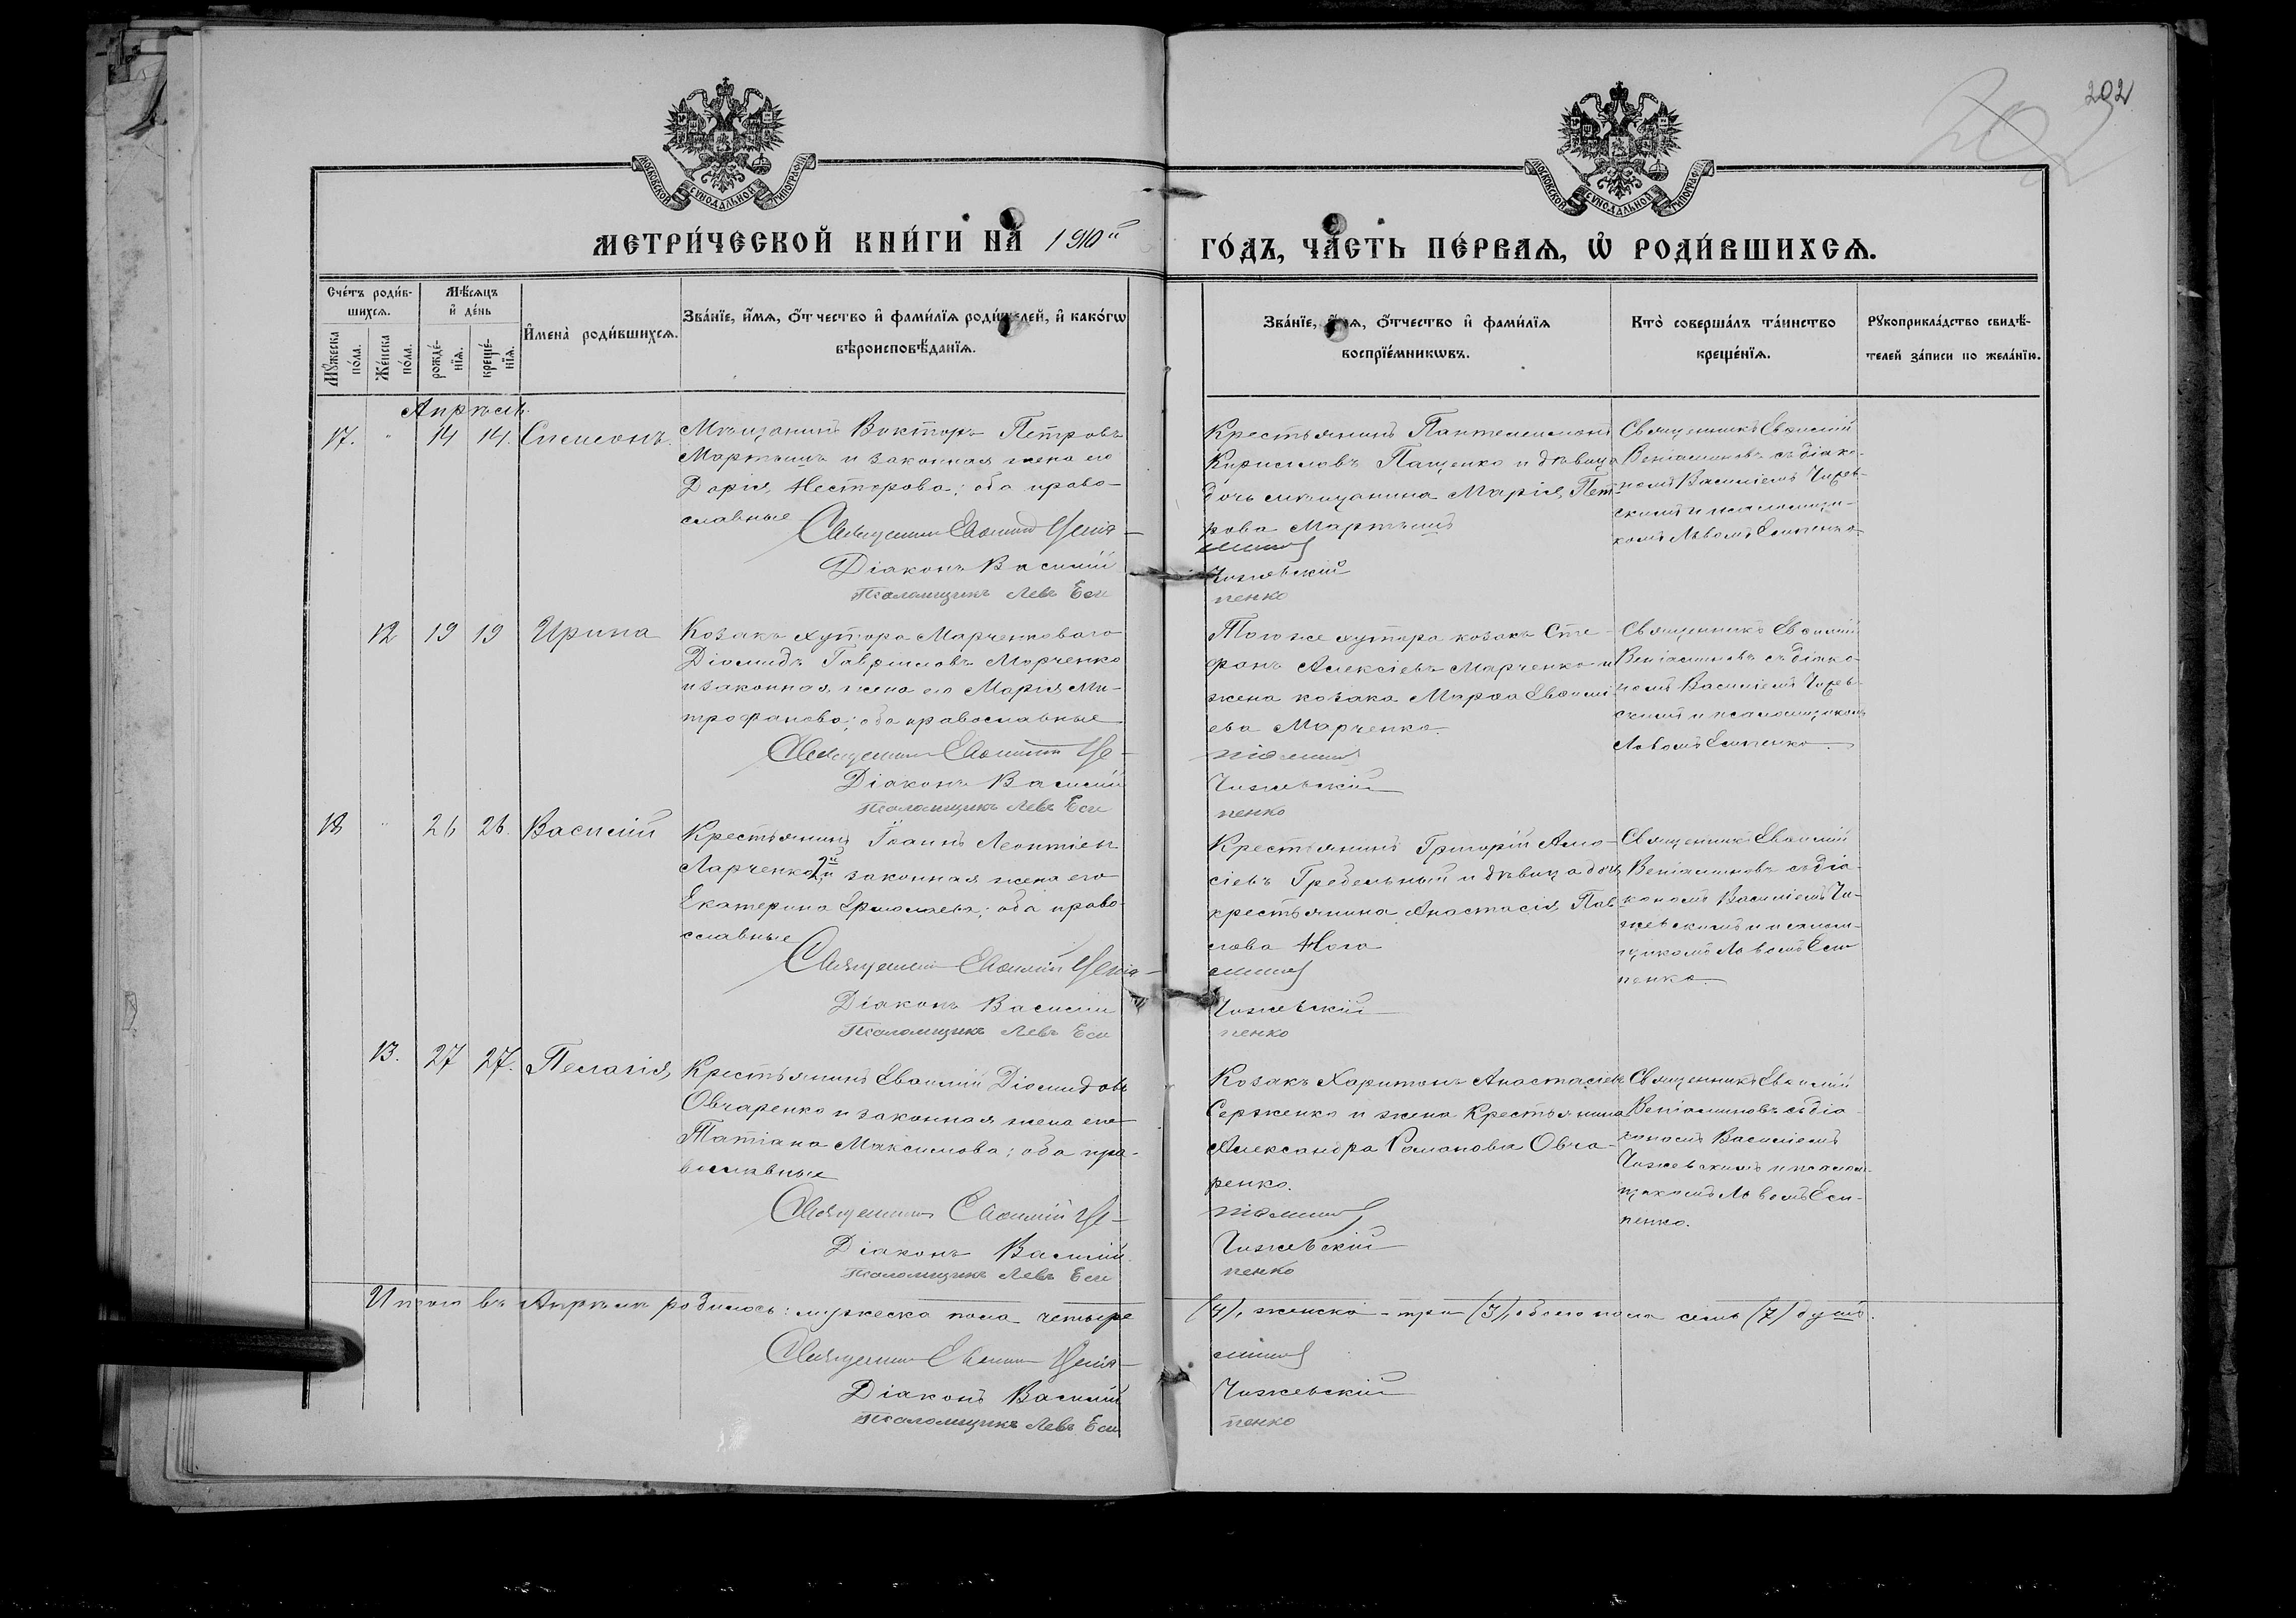 202
202
МОСКОВСКОЙ СУНОДАЛЬНОЙ ТИПОГРАФІИ
МОСКОВСКОЙ СУНОДАЛЬНОЙ ТИПОГРАФІИ
МЕТРИ́ЧЕСКОЙ КНИ́ГИ НА̀ 1910й ГО́ДЪ, ЧА́СТЬ ПЕ́РВАѦ, Ѡ҆ РОДИ́ВШИХСѦ.
Сче́тъ роди́в-
шихсѧ.
Мѣ́сѧцъ
и҆ де́нь
Мꙋ́жеска по́ла.
Же́нска по́ла.
рожде́-нїѧ.
креще́-нїѧ.
И҆мена̀ роди́вшихсѧ.
Зва́нїе, и҆́мѧ, ѻ҆́тчество и҆ фами́лїѧ роди́телей, и҆ како́гѡ
вѣроисповѣ́данїѧ.
Зва́нїе, и҆́мѧ, ѻ҆́тчество и҆ фами́лїѧ
воспрїе́мникѡвъ.
Кто̀ соверша́лъ та́инство
креще́нїѧ.
Рꙋкоприкла́дство свидѣ́-
телей за́писи по жела́нїю.
Апрѣль.
17. " 14 14. Симеонъ.
Мѣщанинъ Викторъ Петровъ
Мартышъ и законная жена его
Дарія Нестерова; оба право-
славные
Священникъ Евѳимій Венiа-
Діаконъ Василій
Псаломщикъ Левъ Еси
Крестьянинъ Пантелеимонъ
Кирилловъ Пащенко и дѣвица
дочь мѣщанина Марія Пет-
рова Мартышъ
миновъ
Чижевскій
пенко
Священникъ Евѳимій
Веніаминовъ съ діако-
номъ Василіемъ Чижев-
скимъ и псаломщи-
комъ Львомъ Есипенко
12 19 19 Ирина
Козакъ хутора Марченкового
Діомидъ Гавріиловъ Марченко
и законная жена его Марія Ми-
трофанова; оба православные
Священникъ Евѳимій Ве-
Діаконъ Василій
Псаломщикъ Левъ Еси
Того же хутора козакъ Сте-
фанъ Алексіевъ Марченко и
жена козака Марѳа Евѳимі-
ева Марченко.
ніаминовъ
Чижевскій
пенко
Священникъ Евѳимій
Веніаминовъ съ діако-
номъ Василіемъ Чижев-
скимъ и псаломщикомъ
Львомъ Есипенко.
18 " 26 26. Василий
Крестьянинъ Іоаннъ Леонтіевъ
Ларченко 2й и законная жена его
Екатерина Ермолаева; оба право-
славные
Священникъ Евѳимій Веніа-
Діаконъ Василій
Псаломщикъ Левъ Еси
Крестьянинъ Григорій
Гребельный и дѣвица дочь
крестьянина Анастасія Пав-
лова Нога
миновъ
Чижевскій
пенко
Священникъ Евѳимій
Веніаминовъ съ діа-
кономъ Василіемъ Чи-
жевскимъ и псалом-
щикомъ Львомъ Еси
пенко.
13. 27 27. Пелагія
Крестьянинъ Евѳимій Діомидовъ
Овчаренко и законная жена его
Татіана Максимова; оба пра-
вославные
Священникъ Евѳимій Ве-
Діаконъ Василій
Псаломщикъ Левъ Еси
Козакъ Харитонъ Анастасіевъ
Серженко и жена крестьянина
Александра Романова Овча-
ренко.
ніаминовъ
Чижевскій
пенко
Священникъ Евѳимій
Веніаминовъ съ діа-
кономъ Василіемъ
Чижевскимъ и псалом-
щикомъ Львомъ Еси-
пенко.
Итого въ Апрѣлѣ родилось: мужеска пола четыре (4), женска - три (3), обоего пола семь (7) душъ.
Священникъ Евѳимій Веніа-
миновъ
Діаконъ Василій
Чижевскій
Псаломщикъ Левъ Еси
пенко